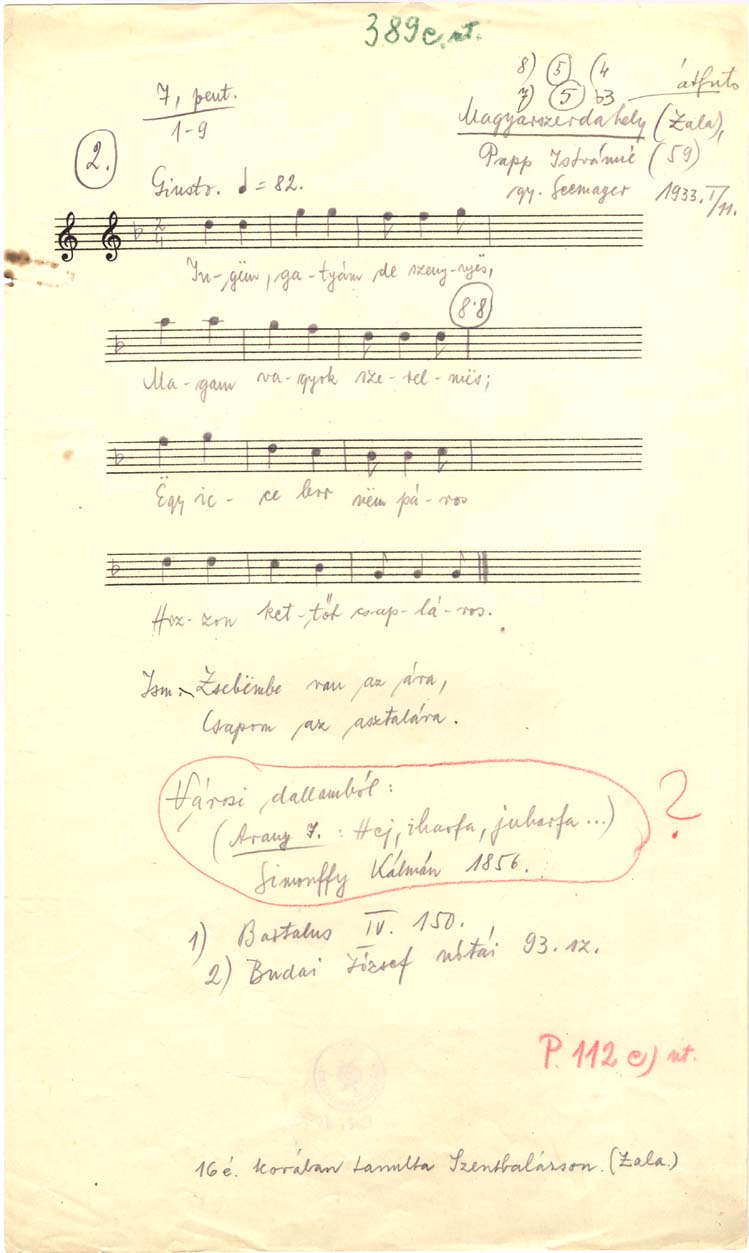 389c. nt.
8) 5 (4
7) 5 b3
átfutó
7, pent.
1-9
Magyarszerdahely (Zala),
Papp Istvánné (59)
gy. Seemayer 1933. I/11.
2.
Giusto. = 82.
2
4
In-gëm, ga-tyám de szeny-nyës,
8·8
Ma-gam va-gyok sze-rel-mës;
Ëgy ic-ce bor nëm pá-ros
Hoz-zon ket-tőt csap-lá-ros.
Ism. Zsebëmbe van az ára,
Csapom az asztalára.
Városi dallamból:
(Arany J. : Hej, iharfa, juharfa...)
?
Simonffy Kálmán 1856.
1) Bartalus IV. 150.
2) Budai József nótái 93. sz.
P. 112 c) nt.
16 é. korában tanulta Szentbalázson. (Zala.)